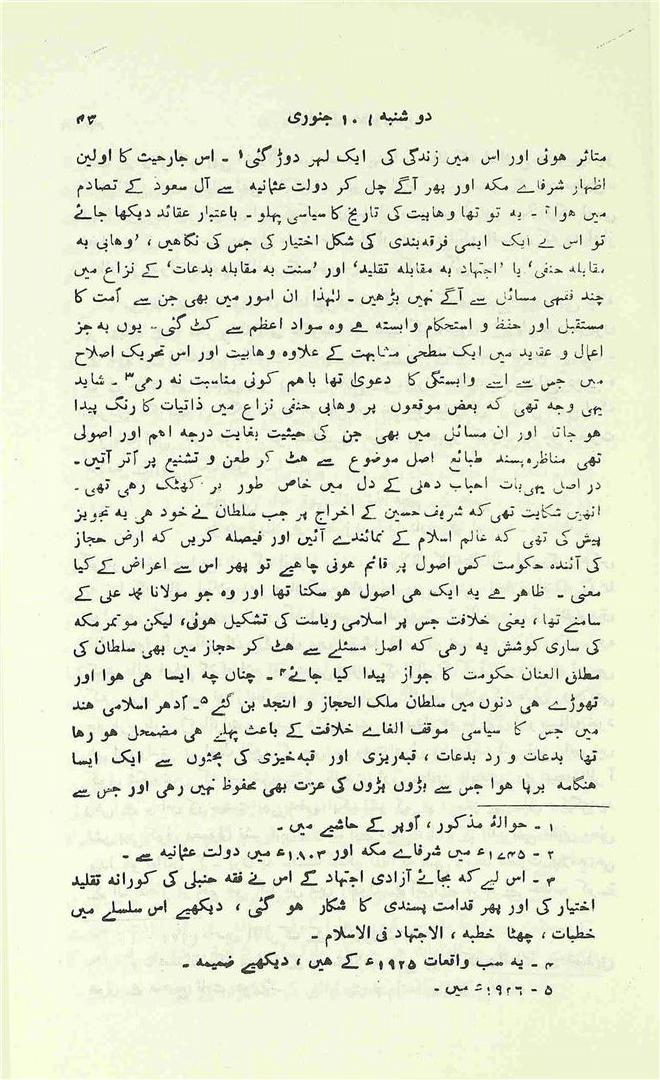 دو شنبہ / ۱۰ جنوری ۴۳
متاثر ہوئی اور اس میں زندگی کی ایک لہر دوڑ گئی۱ ۔ اس جارحیت کا اولین
اظہار شرفاے مکہ اور پھر آگے چل کر دولت عثمانیہ سے آل سعود کے تصادم
میں ہوا۲ ۔ یہ تو تھا وہابیت کی تاریخ کا سیاسی پہلو ۔ باعتبار عقائد دیکھا جائے
تو اس نے ایک ایسی فرقہ بندی کی شکل اختیار کی جس کی نگاہیں ، ’وہابی بہ
مقابلہ حنفی‘ یا ’اجتہاد بہ مقابلہ تقلید‘ اور ’سنت بہ مقابلہ بدعات‘ کے نزاع میں
چند فقہی مسائل سے آگے نہیں بڑھیں ۔ لہٰذا ان امور میں بھی جن سے اُمت کا
مستقبل اور حفظ و استحکام وابستہ ہے وہ سواد اعظم سے کٹ گئی ۔ یوں بہ جز
اعمال و عقاید میں ایک سطحی مشابہت کے علاوہ وہابیت اور اس تحریک اصلاح
میں جس سے اسے وابستگی کا دعویٰ تھا باہم کوئی مناسبت نہ رہی۳ ۔ شاید
یہی وجہ تھی کہ بعض موقعوں پر وہابی حنفی نزاع میں ذاتیات کا رنگ پیدا
ہو جاتا اور ان مسائل میں بھی جن کی حیثیت بغایت درجہ اہم اور اصولی
تھی مناظرہ پسند طبائع اصل موضوع سے ہٹ کر طعن و تشنیع پر اُتر آتیں ۔
در اصل یہی بات احباب دہلی کے دل میں خاص طور پر کھٹک رہی تھی ۔
انھیں شکایت تھی کہ شریف حسین کے اخراج پر جب سلطان نے خود ہی یہ تجویز
پیش کی تھی کہ عالم اسلام کے نمائندے آئیں اور فیصلہ کریں کہ ارض حجاز
کی آئندہ حکومت کس اصول پر قائم ہونی چاہیے تو پھر اس سے اعراض کے کیا
معنی ۔ ظاہر ہے یہ ایک ہی اصول ہو سکتا تھا اور وہ جو مولانا محمد علی کے
سامنے تھا ، یعنی خلافت جس پر اسلامی ریاست کی تشکیل ہوئی، لیکن موتمر مکہ
کی ساری کوشش یہ رہی کہ اصل مسئلے سے ہٹ کر حجاز میں بھی سلطان کی
مطلق العنان حکومت کا جواز پیدا کیا جائے۴ ۔ چناں چہ ایسا ہی ہوا اور
تھوڑے ہی دنوں میں سلطان ملک الحجاز و النجد بن گئے۵۔ اُدھر اسلامی ہند
میں جس کا سیاسی موقف الغاے خلافت کے باعث پہلے ہی مضمحل ہو رہا
تھا بدعات و رد بدعات ، قبہ ریزی اور قبہ خیزی کی بحثوں سے ایک ایسا
ہنگامہ برپا ہوا جس سے بڑوں بڑوں کی عزت بھی محفوظ نہیں رہی اور جس سے
۱ ۔ حوالۂ مذکور ، اُوپر کے حاشیے میں ۔
۲ ۔ ۱۷۴۵ء میں شرفاے مکہ اور ۱۸۰۳ء میں دولت عثمانیہ سے ۔
۳ ۔ اس لیے کہ بجائے آزادی اجتہاد کے اس نے فقہ حنبلی کی کورانہ تقلید
اختیار کی اور پھر قدامت پسندی کا شکار ہو گئی ، دیکھیے اس سلسلے میں
خطبات ، چھٹا خطبہ ، الاجتہاد فی الاسلام ۔
۴ ۔ یہ سب واقعات ۱۹۲۵ء کے ہیں ، دیکھیے ضمیمہ ۔
۵ ۔ ۱۹۲۶ء میں ۔